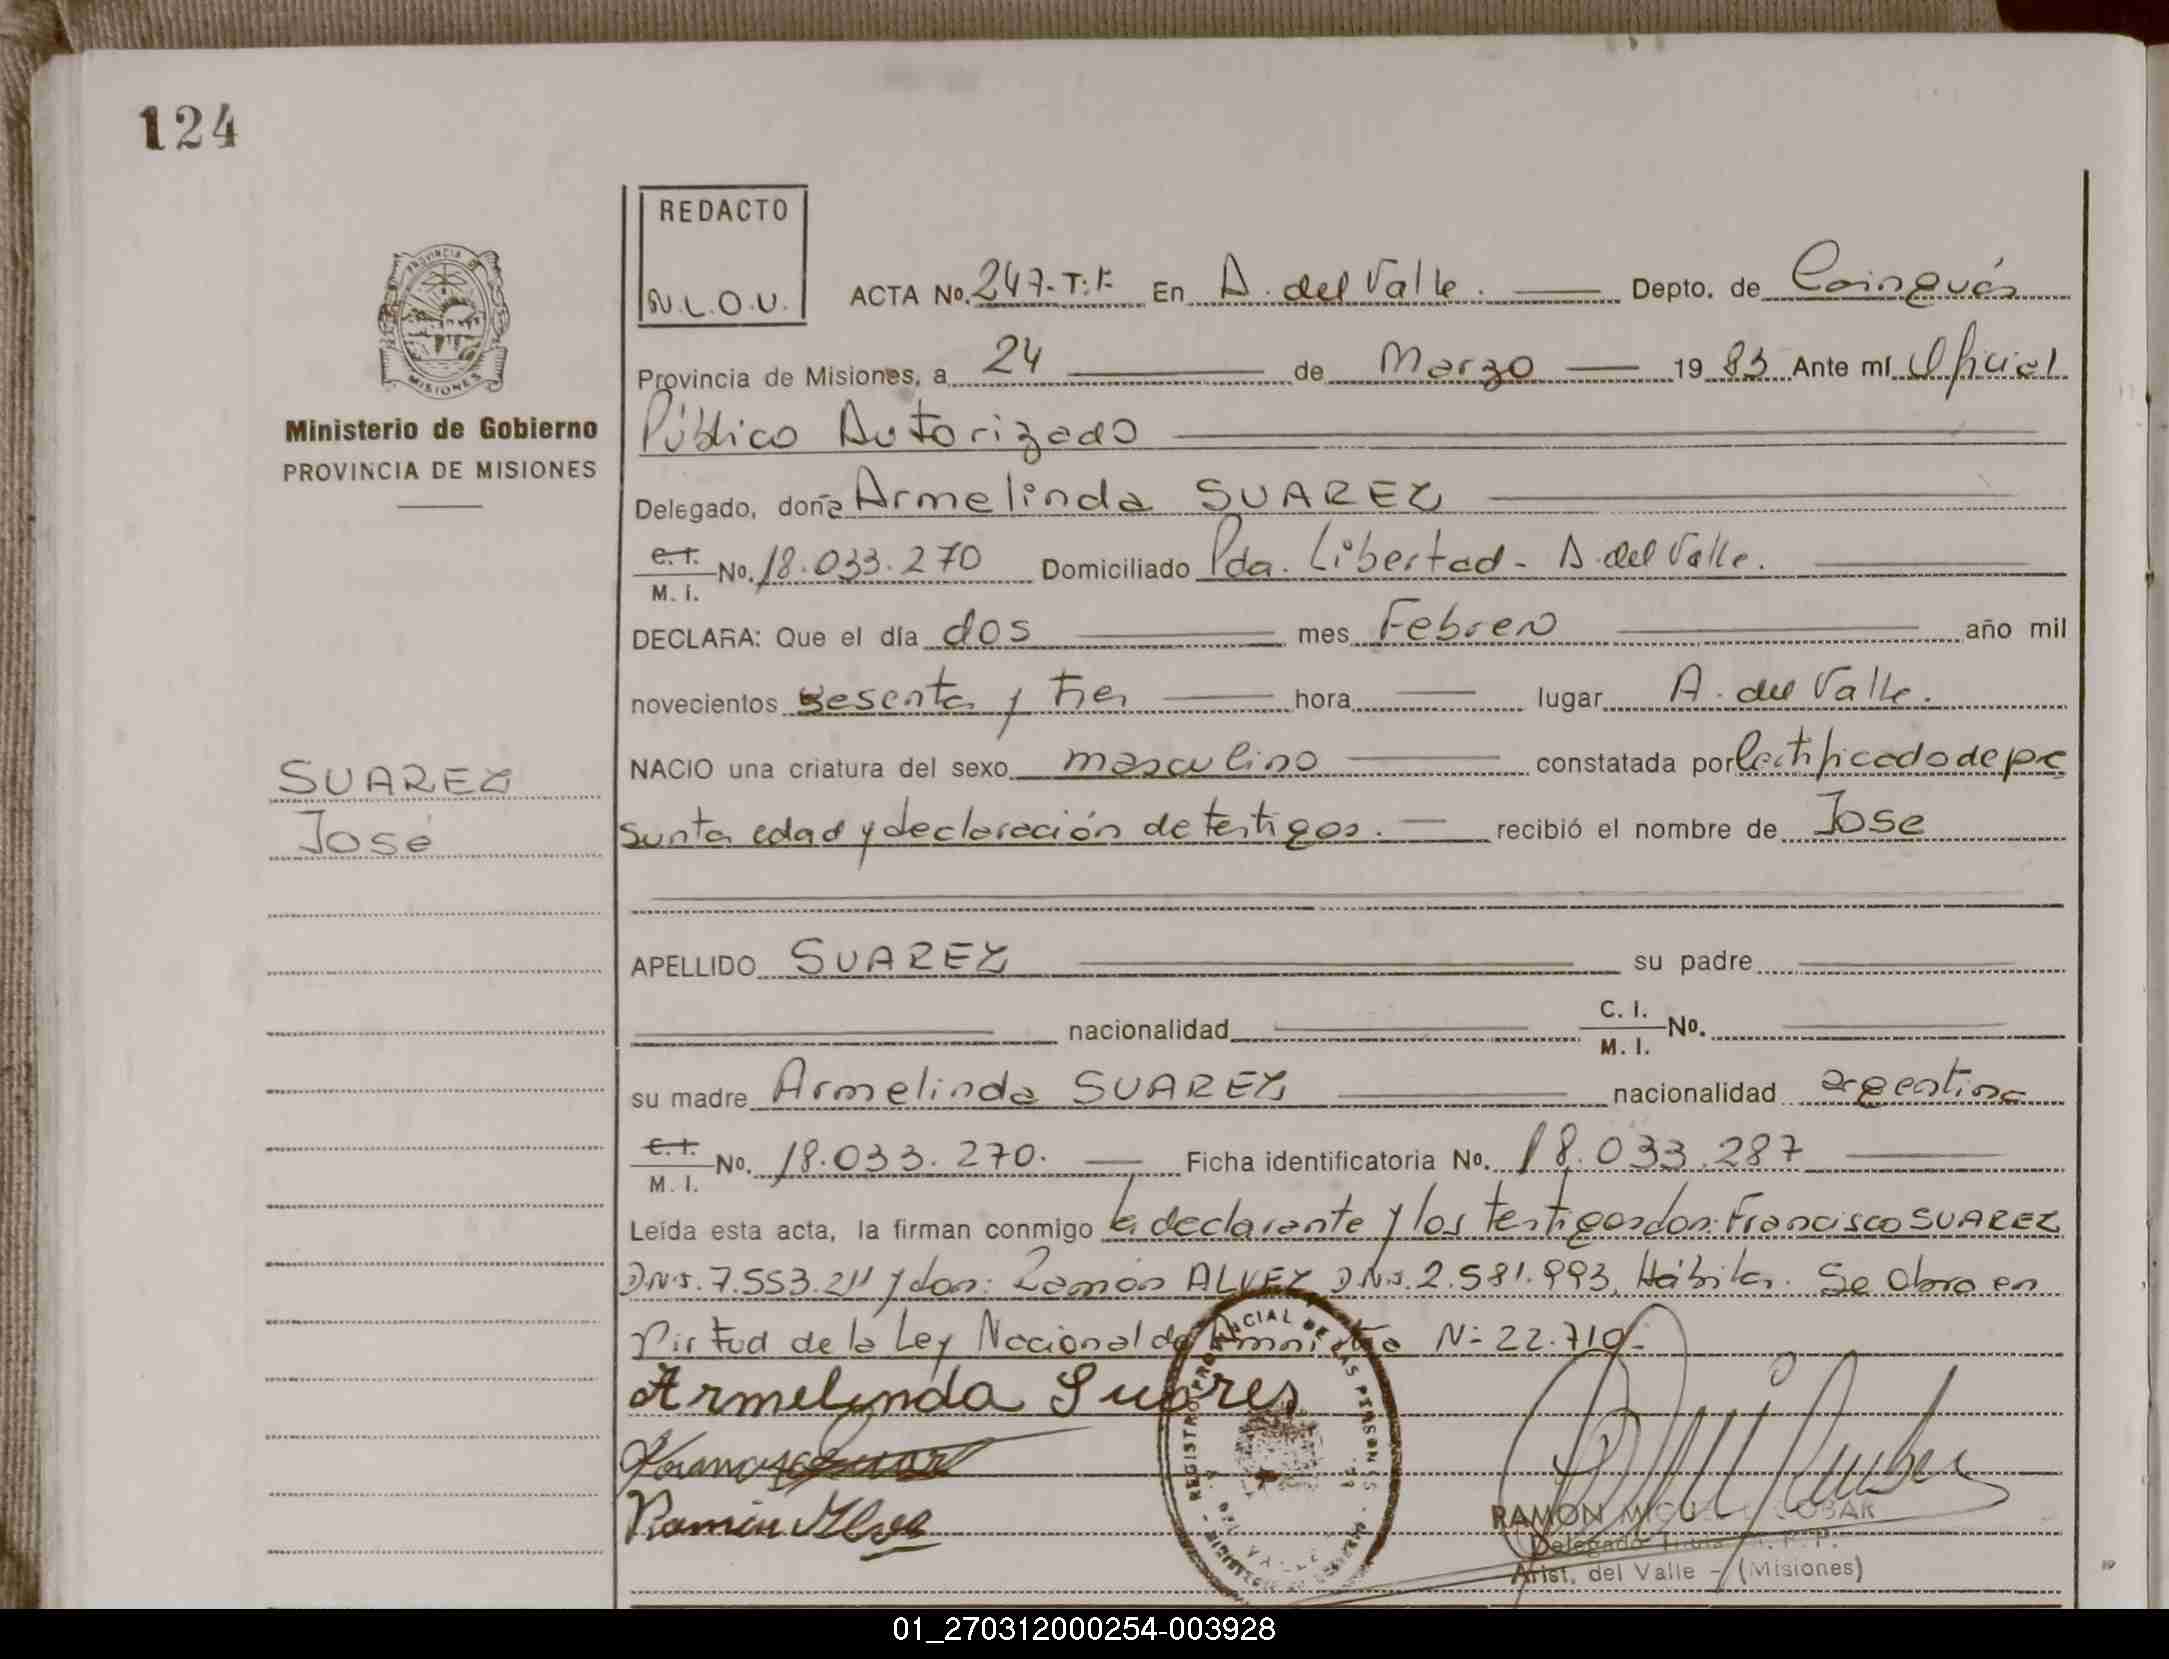 124
REDACTO
N.L.O.U.
ACTA No. 247-T:F En A. del Valle. Depto. de Cainguás
PROVINCIA DE
MISIONES
Ministerio de Gobierno
PROVINCIA DE MISIONES
Provincia de Misiones, a 24 de Marzo 1983 Ante mí Oficial
Público Autorizado
Delegado, doña Armelinda SUAREZ
C. I.
M. I. No. 18.033.270 Domiciliado Pda. Libertad - A. del Valle.
DECLARA: Que el día dos mes Febrero año mil
novecientos sesenta y tres hora lugar A. del Valle.
NACIO una criatura del sexo masculino constatada por Certificado de pre
sunta edad y declaración de testigos. recibió el nombre de Jose
SUAREZ
José
APELLIDO SUAREZ su padre
nacionalidad C. I.
M. I. No.
su madre Armelinda SUAREZ nacionalidad argentina
C. I.
M. I. No. 18.033.270. Ficha identificatoria No. 18.033.287
Leída esta acta, la firman conmigo la declarante y los testigos don: Francisco SUAREZ
D.N.I. 7.553.211 y don: Ramón ALVEZ D.N.I. 2.581.993, Hábiles. Se Obro en
Virtud de la Ley Nacional de Amnistia Nº 22.710-
Armelinda Suares
REGISTRO PROVINCIAL DE LAS PERSONAS
RAMON MIGUEL ESCOBAR
Delegado
Arist. del Valle - (Misiones)
01_270312000254-003928